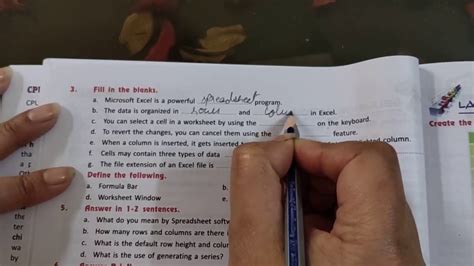 3. Fill in the blanks.
a. Microsoft Excel is a powerful spreadsheet program.
b. The data is organized in rows and colum in Excel.
c. You can select a cell in a worksheet by using the on the keyboard.
d. To revert the changes, you can cancel them using the feature.
e. When a column is inserted, it gets inserted column.
f. Cells may contain three types of data
g. The file extension of an Excel file is
Define the following.
a. Formula Bar b.
d. Worksheet Window e.
5. Answer in 1-2 sentences.
a. What do you mean by Spreadsheet softw
b. How many rows and columns are there i
c. What is the default row height and colur
d. What is the use of generating a series?
CPU
Create the